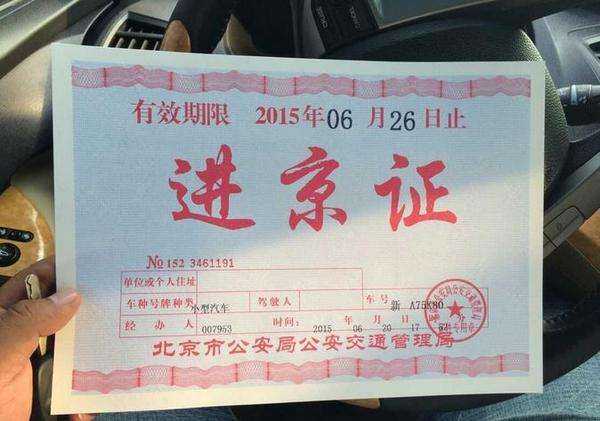 有效期限 2015年06月26日止
进京证
№152 3461191
单位或个人住址
车种号牌种类 小型汽车 驾驶人 车号 新 A75K80
经办人 007953 时间: 2015年 06月 20 17
北京市公安局公安交通管理局